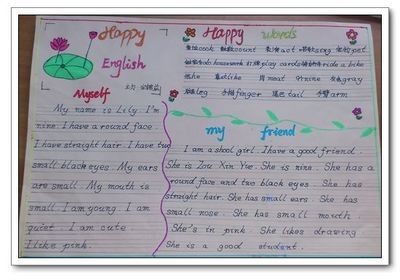 Happy
English
Happy words
cook count act sing pet
housework play cards ride a bike
she like meat nine gray
leg finger tail arm
Myself
My name is Lily. I'm
nine. I have a round face.
I have straight hair. I have two
small black eyes. My ears
are small. My mouth is
small. I am young. I am
quiet. I am cute
I like pink.
my friend
I am a school girl. I have a good friend.
She is Zou Xin Yue. She is nine. She has a
round face and two black eyes. She has
straight hair. She has small ears. She has
small nose. She has small mouth.
She's in pink. She likes drawing
She is a good student.